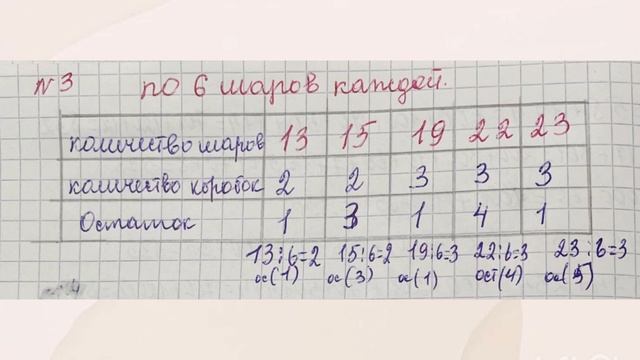 №3 по 6 шаров каждой.
количество шаров 13 15 19 22 23
количество коробок 2 2 3 3 3
Остаток 1 3 1 4 1
13:6=2 15:6=2 19:6=3 22:6=3 23:6=3
ос(1) ос(3) ос(1) ост(4) ос(5)